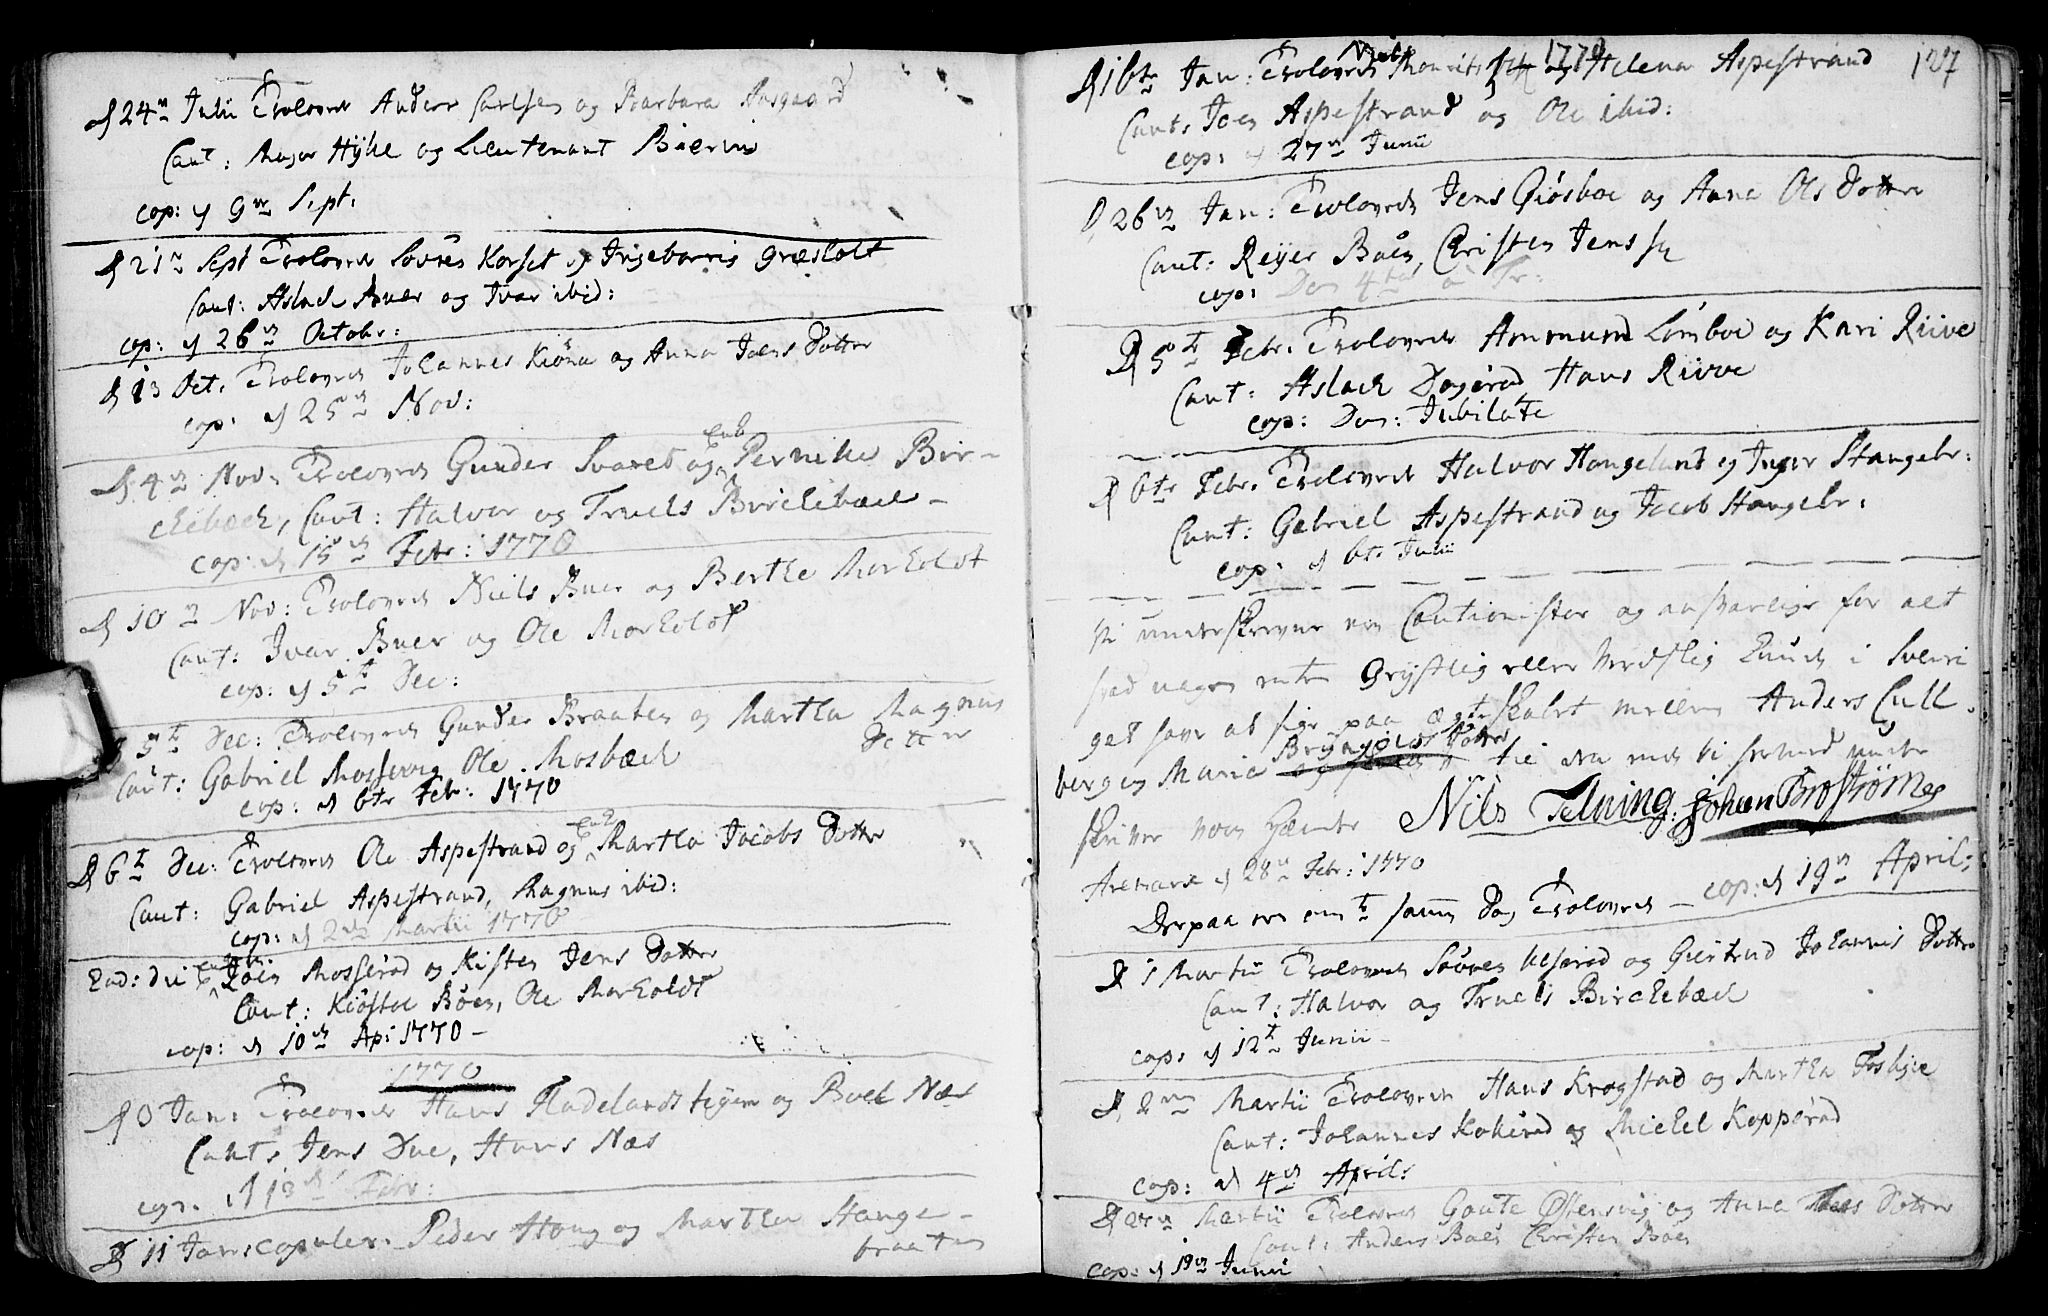 d 24n Julii Trolovede Anders Carlsen og Barbara Aasgaard
Caut: Major Hyhe og Lieutenant Biervi
cop: d 9ne Sept:
d 21n Sept Trolovede Sövren Korset og Ingeborrig Græslott
Caut: Aslack Buer og Ivar ibid:
cop: d 26n Octobr:
d 13 Oct. Trolovede Johannes Kiöna og Anna Joens Dotter
cop: d 25n Nov:
d 4n Nov: Trolovede Gunder Svared og Enk Pernike Bir-
ckebæck, Caut: Halvor og Truels Birckebæck -
cop: d 15n Febr: 1770
d 10n Nov: Trolovede Niels Buer og Berthe Morholdt
Caut: Ivar Buer og Ole Morholdt
cop: d 5t Dec:
d 5t Dec: Trolovede Gunder Braaten og Martha Magnus
Dotter
Caut: Gabriel Mossevig Ole Mosbæck
cop: d 6te Febr: 1770
d 6t Dec: Trolovede Ole Aspestrand og Enk Martha Jacobs Dotter
Caut: Gabriel Aspestrand, Magnus ibid:
cop: d 2den Martii 1770
Eod: die Joen Mosseröd og Kisten Jens Dotter
Caut: Kiöstol Böen, Ole Morholdt
cop: d 10n Ap: 1770 -
1770
d Jan: Trolovede Hans Fladelandstigen og Boel Næs
Caut, Jens Due, Hans Næs
cop. d 13n Febr:
d 11 Jan: copuler. Peder Houg og Martha Stange-
braaten
1770
127
d 16te Jan: Trolovede Mourits og Helena Aspestrand
Caut, Joen Aspestrand og Ole ibid:
cop: d 27n Junii
d 26n Jan: Trolovede Jens Giösboe og Anna Ols Dotter
Caut: Reyer Boen, Christen Jenss
cop: Dom 4ta a Tr:
d 5te Febr. Trolovede Ammund Lömboe og Kari Riive
Caut: Aslach Dogeröd Hans Riive
cop: Dom: Jubilate
d 6te Febr. Trolovede Halvor Hougelund og Inger Stangebr:
Caut: Gabriel Aspestrand og Jacob Stangebr:
cop. d 6te Junii
Vi underskrevne ere Cautionister og ansvarlige for alt
hvad nogen enten Gejstlig eller Verdslig Kunde i Sverri
get have at sige paa ægteskabet mellem Anders Cull-
bergen Maria Bryngols Dotter
skriver vore Hænder Nils Telning. Johan Broströmer
Aremark d 28n Febr: 1770
Derpaa ere em samme Dag Trolovede - cop: d 19n April:
d 1 Martii Trolovede Sövren og Giertrud Johannis Dotter
Caut: Halvor og Truels Birckebæck
cop: d 12t Junii -
d 2en Martii Trolovede Hans Krogstad og Martha Foshye
Caut: Johannes Kokeröd og Michel Kopperöd
cop: d 4n April:
d 27n Martii Trolovede Goute Östensvig og Anna Dotter
Caut: Anders Boen Christen Boen
cop: d 19n Junii